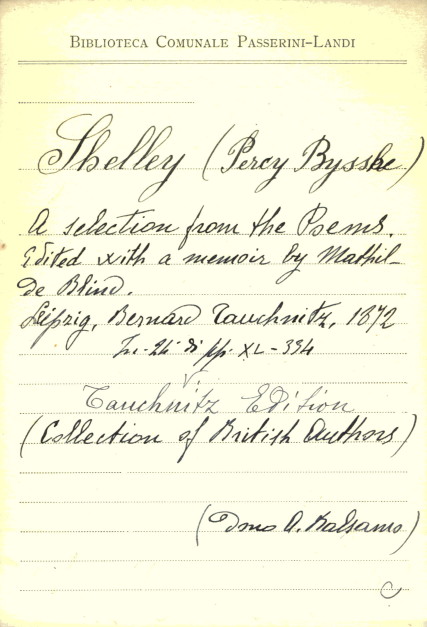 BIBLIOTECA COMUNALE PASSERINI-LANDI
Shelley (Percy Bysshe)
A selection from the Poems.
Edited with a memoir by Mathil-
de Blind.
Leipzig, Bernard Tauchnitz, 1872
In-24 di pp. XL-334
Tauchnitz Edition
(Collection of British Authors)
(Dono A. Balsamo)
C